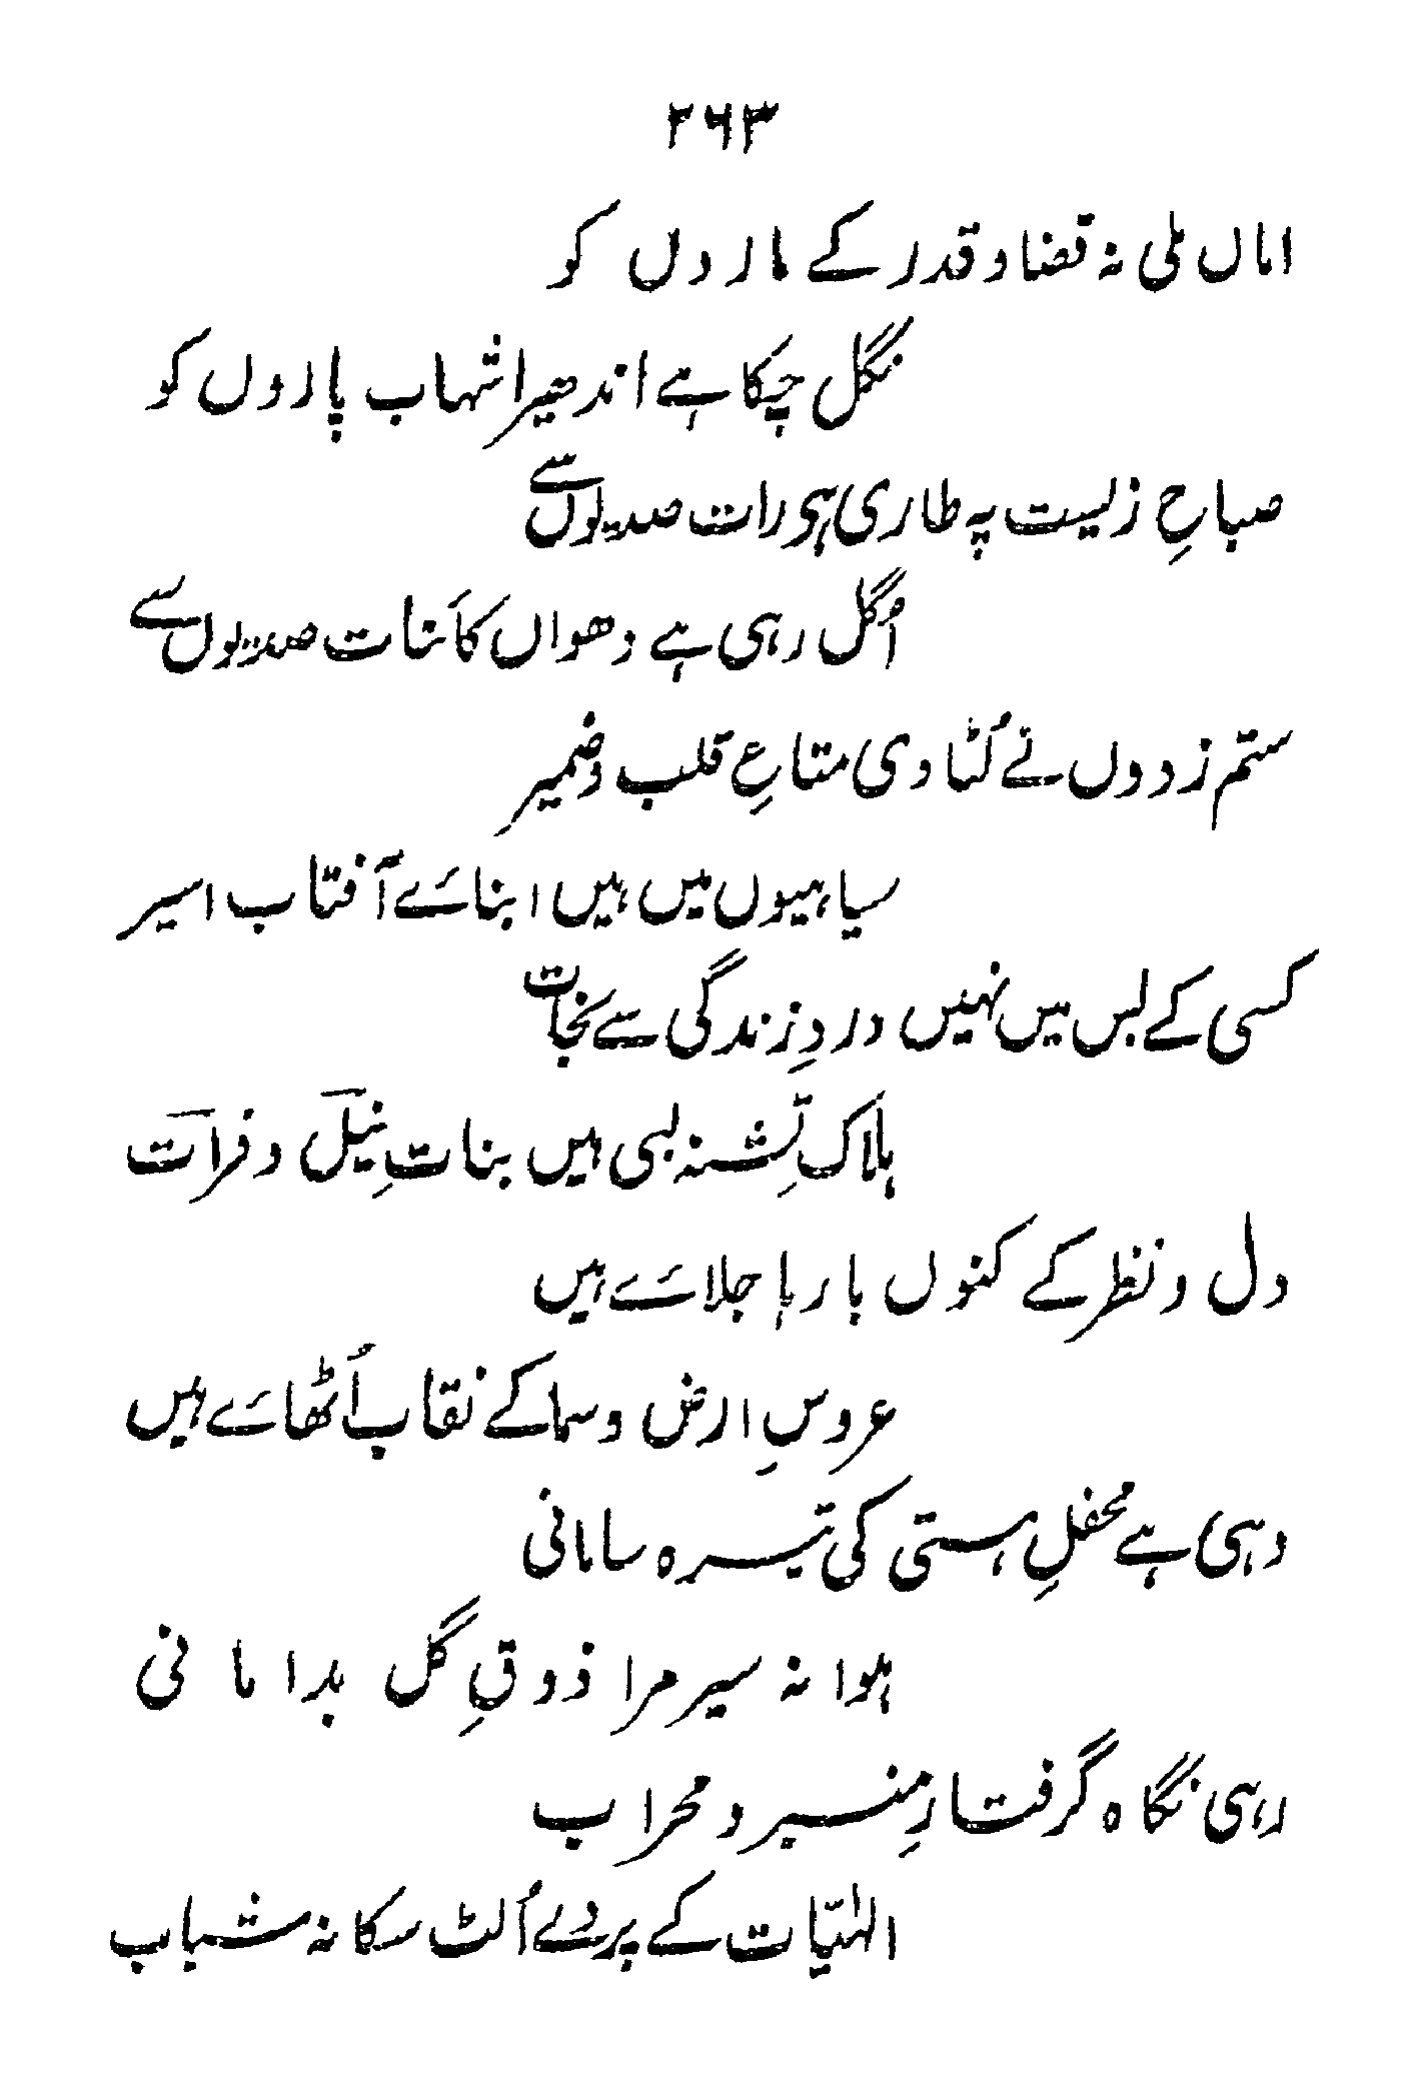 ۲۶۳
اماں ملی نہ قضا و قدر کے ماروں کو
نگل چکا ہے اندھیرا شہاب پاروں کو
صباحِ زیست پہ طاری ہی رات صدیوں سے
اُگل رہی ہے دھواں کائنات صدیوں سے
ستم زدوں نے لُٹا دی متاعِ قلب و ضمیر
سیاہیوں میں ہیں ابنائے آفتاب اسیر
کسی کے بس میں نہیں دردِ زندگی سے نجات
ہلاکِ تشنہ لبی ہیں بناتِ نیل و فرات
دل و نظر کے کنول بارہا جلائے ہیں
عروسِ ارض و سما کے نقاب اُٹھائے ہیں
وہی ہے محفلِ ہستی کی تیرہ سامانی
ہوا نہ سیر مرا ذوقِ گل بدامانی
رہی نگاہ گرفتارِ منبر و محراب
الٰہیّات کے پردے اُلٹ سکا نہ شباب